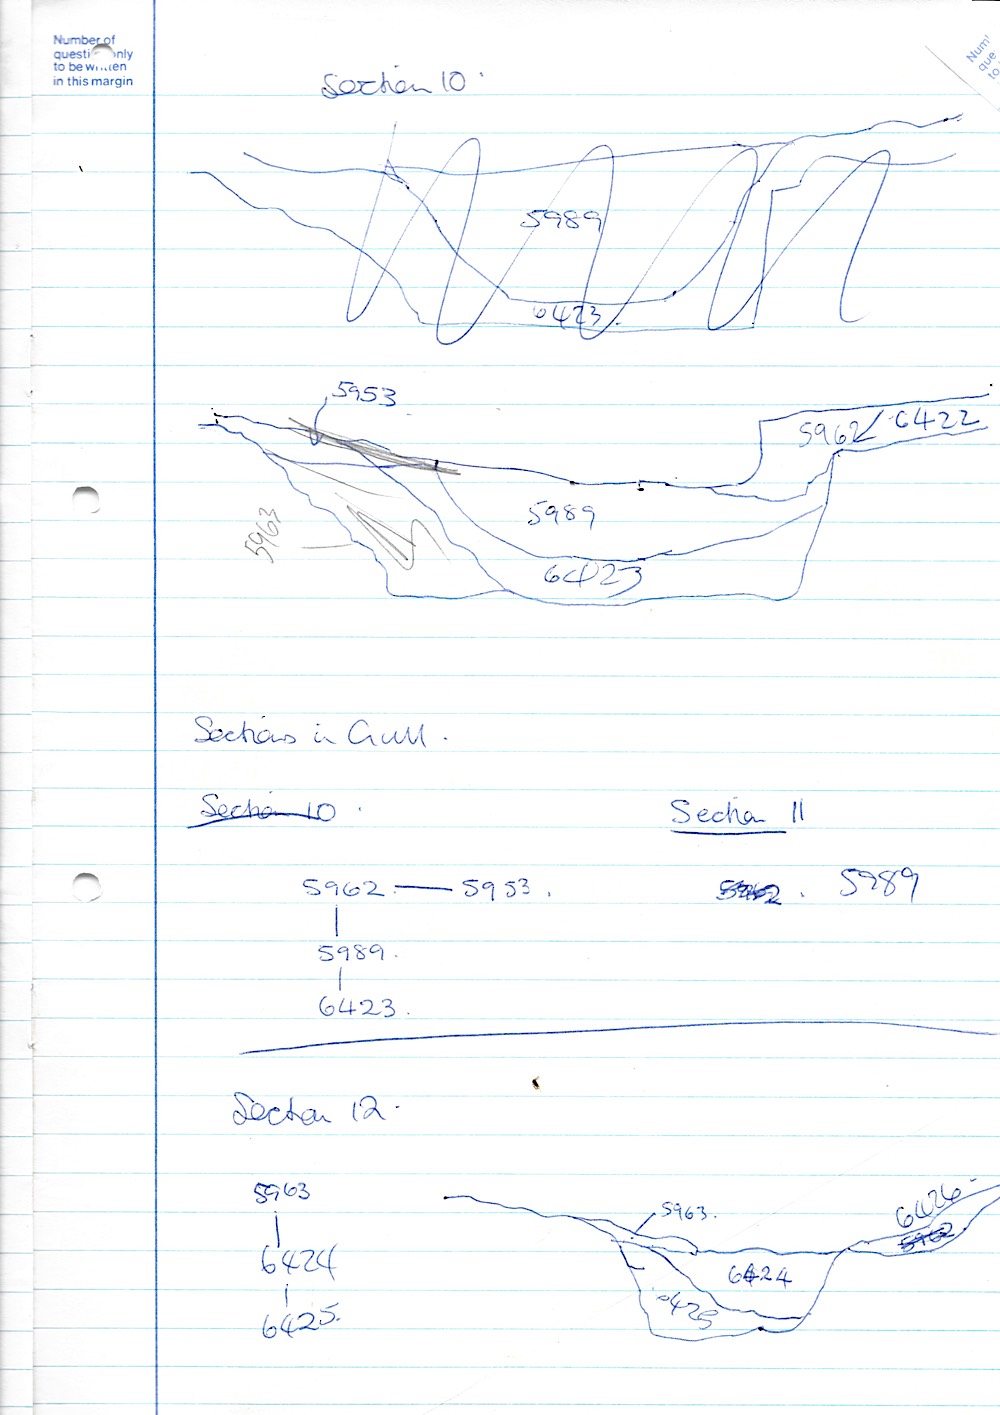 Number of
questi nly
to be wr tten
in this margin
Num
que
to
Section 10
5989
6423
5953
5962/6422
5989
5963
6423
Sections in Gull.
Section 10
Section 11
5962 — 5953.
5962. 5989
5989.
6423.
Section 12.
5963
5963.
6426
5962
6424
6424
6425
6425.